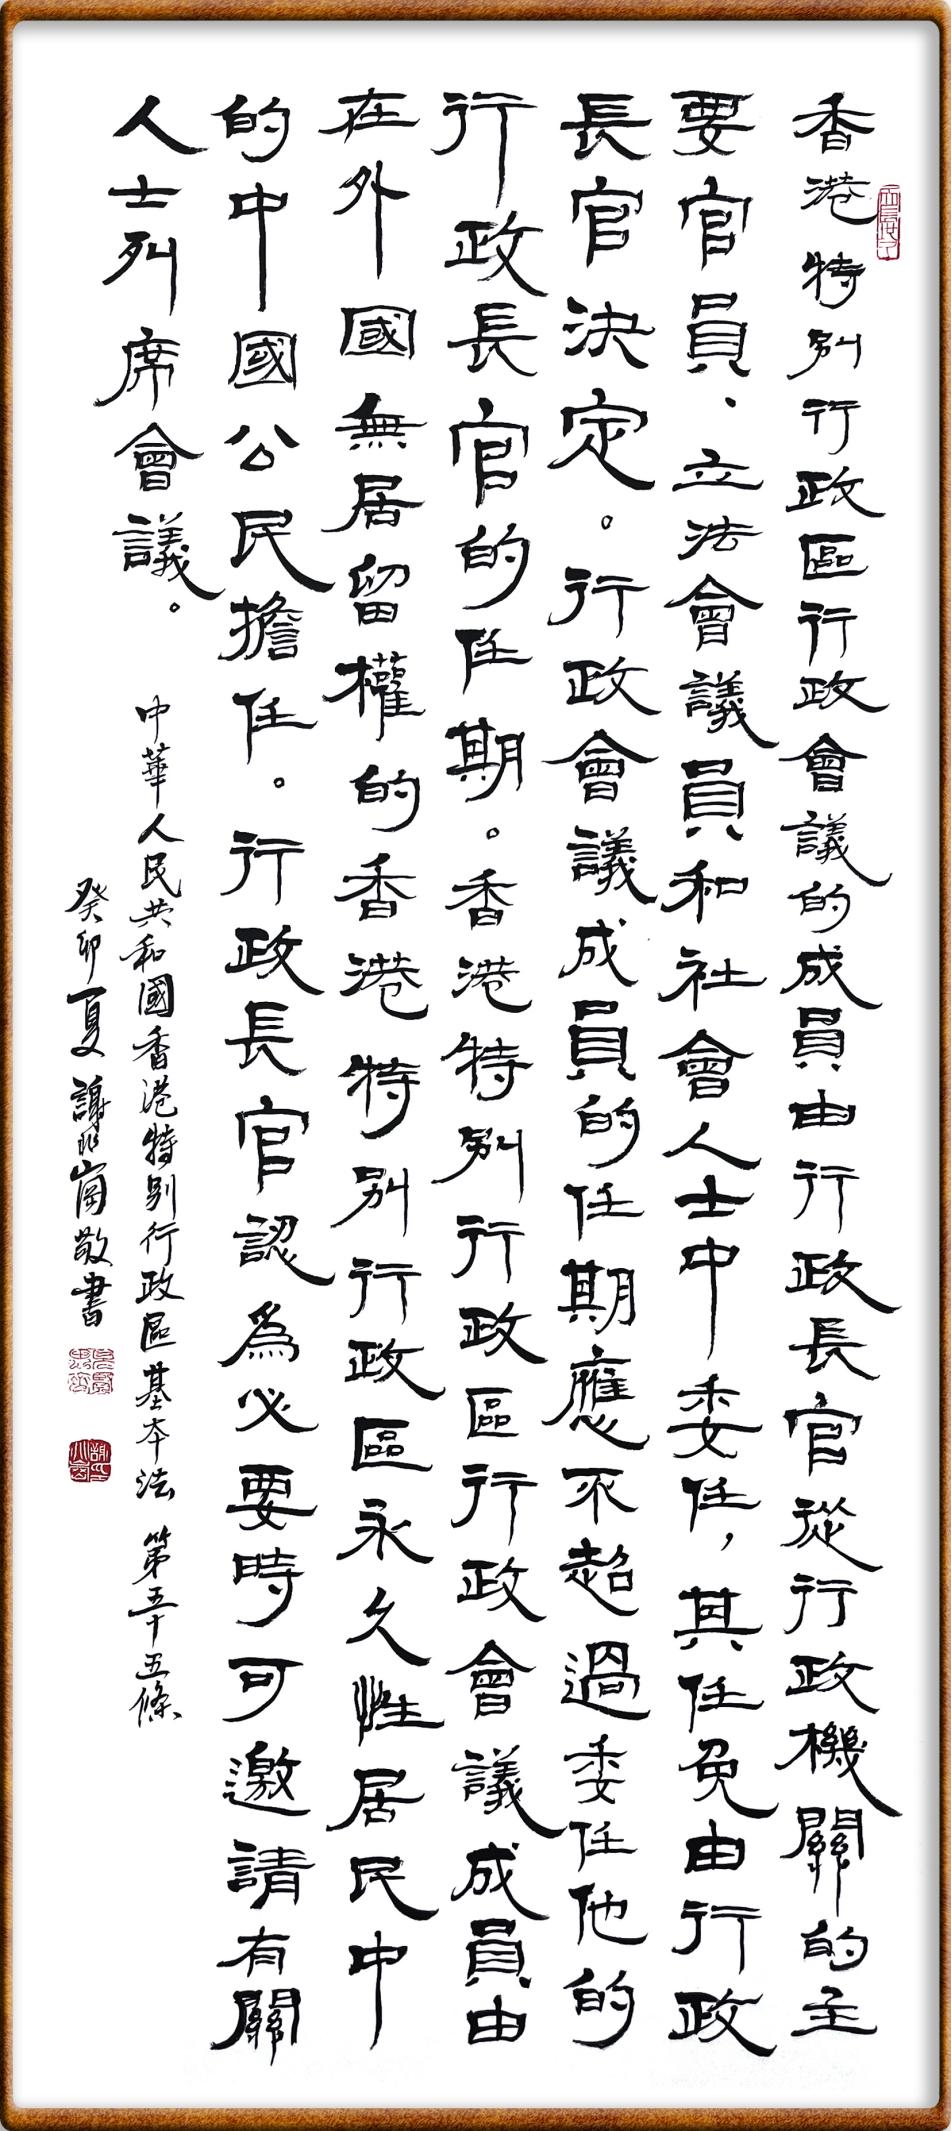 香港特別行政區行政會議的成員由行政長官從行政機關的主
要官員、立法會議員和社會人士中委任，其任免由行政
長官決定。行政會議成員的任期應不超過委任他的
行政長官的任期。香港特別行政區行政會議成員由
在外國無居留權的香港特別行政區永久性居民中
的中國公民擔任。行政長官認為必要時可邀請有關
人士列席會議。
中華人民共和國香港特別行政區基本法 第五十五條
癸卯夏 謝崗敬書